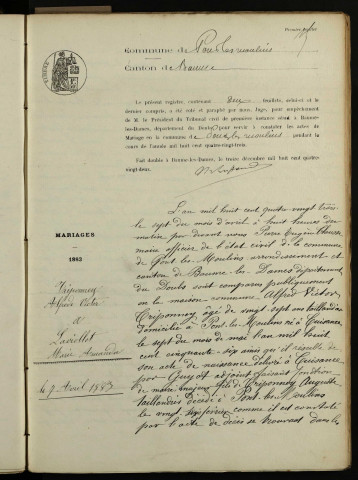 Commune de Pont-les-moulins
Canton de Baume
Le présent registre contenant deux feuillets, celui-ci et le
dernier compris, a été coté et paraphé par nous, Juge, pour empêchement
de M. le Président du Tribunal civil de première instance séant à Baume-
les-Dames, département du Doubs, pour servir à constater les actes de
Mariage en la commune de Pont-les-moulins pendant le
cours de l'année mil huit cent quatre-vingt-trois.
Fait double à Baume-les-Dames, le trente décembre mil huit cent quatre-
vingt-deux.
MARIAGES
1883
Criponney
Alfred Victor
&
Lavillot
Marie
le 7 Avril 1883
L'an mil huit cent quatre vingt trois
le sept du mois d'avril à huit heures du
matin par devant nous Pierre Eugène
maire officier de l'état civil de la commune
de Pont les Moulins arrondissement et
canton de Baume les Dames département
du Doubs sont comparus publiquement
en la maison commune Alfred Victor
Criponney âgé de vingt sept ans taillandier
domicilié à Pont les Moulins né à Guisance
le sept du mois de mai l'an mil huit
cent cinquante six ainsi qu'il résulte de
son acte de naissance délivré à Guisance
par Guyot adjoint faisant fonction
de maire, majeur fils de Criponney Auguste
taillandier décédé à Pont les Moulins
le vingt février comme il est constaté
par l'acte de décès se trouvant dans les